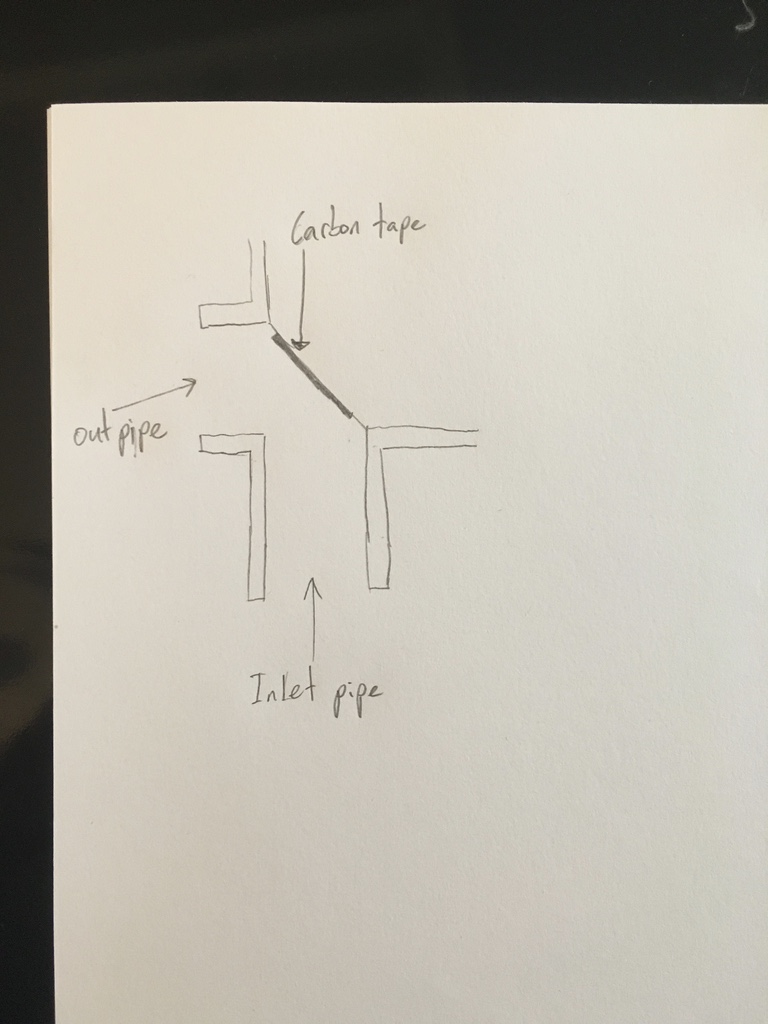 Carbon tape
out pipe
Inlet pipe